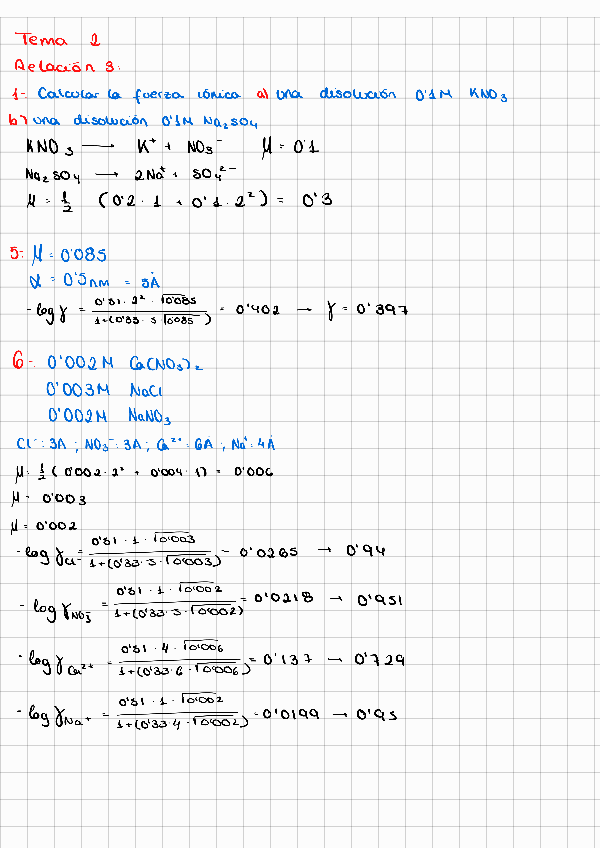 Tema 2
Relación 3:
1- Calcular la fuerza iónica a) una disolución 0'1M KNO₃
b) una disolución 0'1M Na₂SO₄
KNO₃ → K⁺ + NO₃⁻ μ = 0'1
Na₂SO₄ → 2Na⁺ + SO₄²⁻
μ = 1/2 (0'2 · 1 + 0'1 · 2²) = 0'3
5: μ = 0'085
α = 0'5nm = 5Å
-log γ = 0'51 · 2² · √0'085 / 1+(0'33 · 5 √0'085) = 0'402 → γ = 0'397
6-. 0'002M Ca(NO₃)₂
0'003M NaCl
0'002M NaNO₃
Cl⁻: 3A ; NO₃⁻: 3A ; Ca²⁺: 6A ; Na⁺: 4A
μ = 1/2 (0'002 · 2² + 0'004 · 1) = 0'006
μ = 0'003
μ = 0'002
-log γCl⁻ = 0'51 · 1 · √0'003 / 1+(0'33 · 3 · √0'003) = 0'0265 → 0'94
-log γNO₃⁻ = 0'51 · 1 · √0'002 / 1+(0'33 · 3 · √0'002) = 0'0218 → 0'951
-log γCa²⁺ = 0'51 · 4 · √0'006 / 1+(0'33 · 6 · √0'006) = 0'137 → 0'729
-log γNa⁺ = 0'51 · 1 · √0'002 / 1+(0'33 · 4 · √0'002) = 0'0199 → 0'95